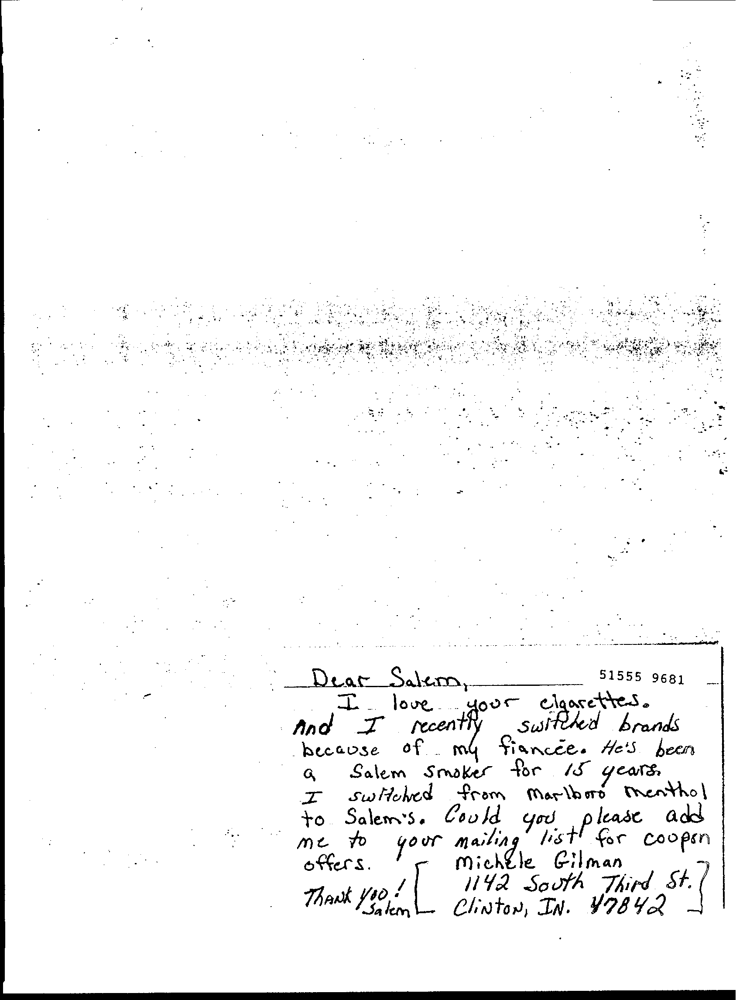 Dear Salem,
51555 9681
I love your cigarettes.
And I recently switched brands
because of my fiancée. He's been
a Salem smoker for 15 years.
I switched from Marlboro menthol
to Salem's. Could you please add
me to your mailing list for coupon
offers.
Michele Gilman
1142 South Third St.
Thank You! Salem
Clinton, IN. 47842